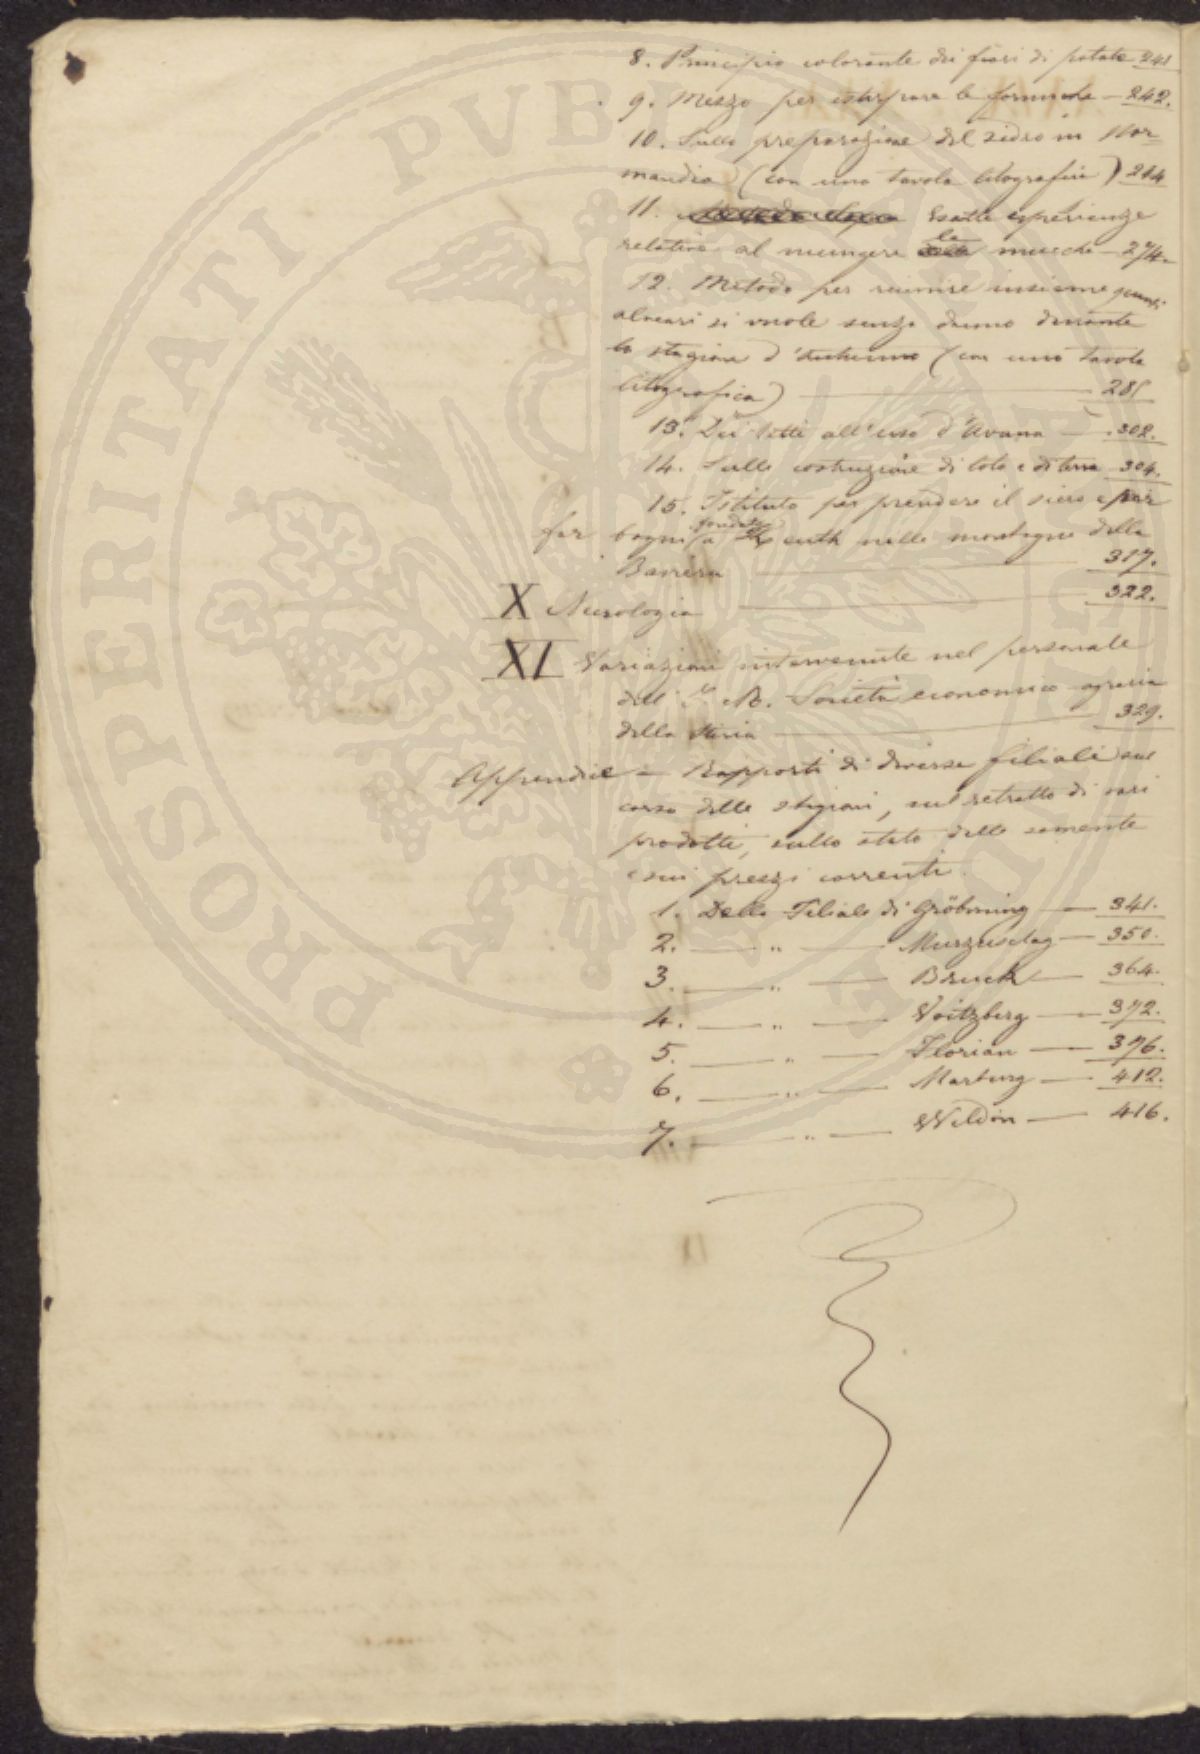 8. Principio colorante dei fiori di patate 241
9. Mezzo per estirpare le formiche — 242.
10. Sulla preparazione del sidro in Nor-
mandia (con una tavola litografica) 264
11. Esatte esperienze
relative al mungere le mucche — 274.
12. Metodo per riunire insieme quanti
alveari si vuole senza danno durante
la stagione d'autunno (con una tavola
litografica) — 285
13. Dei letti all'uso d'Avana — 302.
14. Sulla costruzione di di terra 304.
15. Istituto per prendere il siero e per
far bagni fondato a Kreuth nelle montagne della
Baviera — 317.
X Necrologia — 322.
XI Variazioni intervenute nel personale
dell' I. R. Società economico agraria
della Stiria — 329.
Appendice — Rapporti di diverse filiali sul
corso delle stagioni, sul ritratto di vari
prodotti, sullo stato delle semente
e sui prezzi correnti.
1. Della Filiale di Gröbming — 341.
2. — " — Murzuschlag — 350.
3. — " — Bruck — 364.
4. — " — Voitzberg — 372.
5. — " — Florian — 376.
6. — " — Marburg — 412.
7. — " — Wildon — 416.
PROSPERITATI PVBLICAE